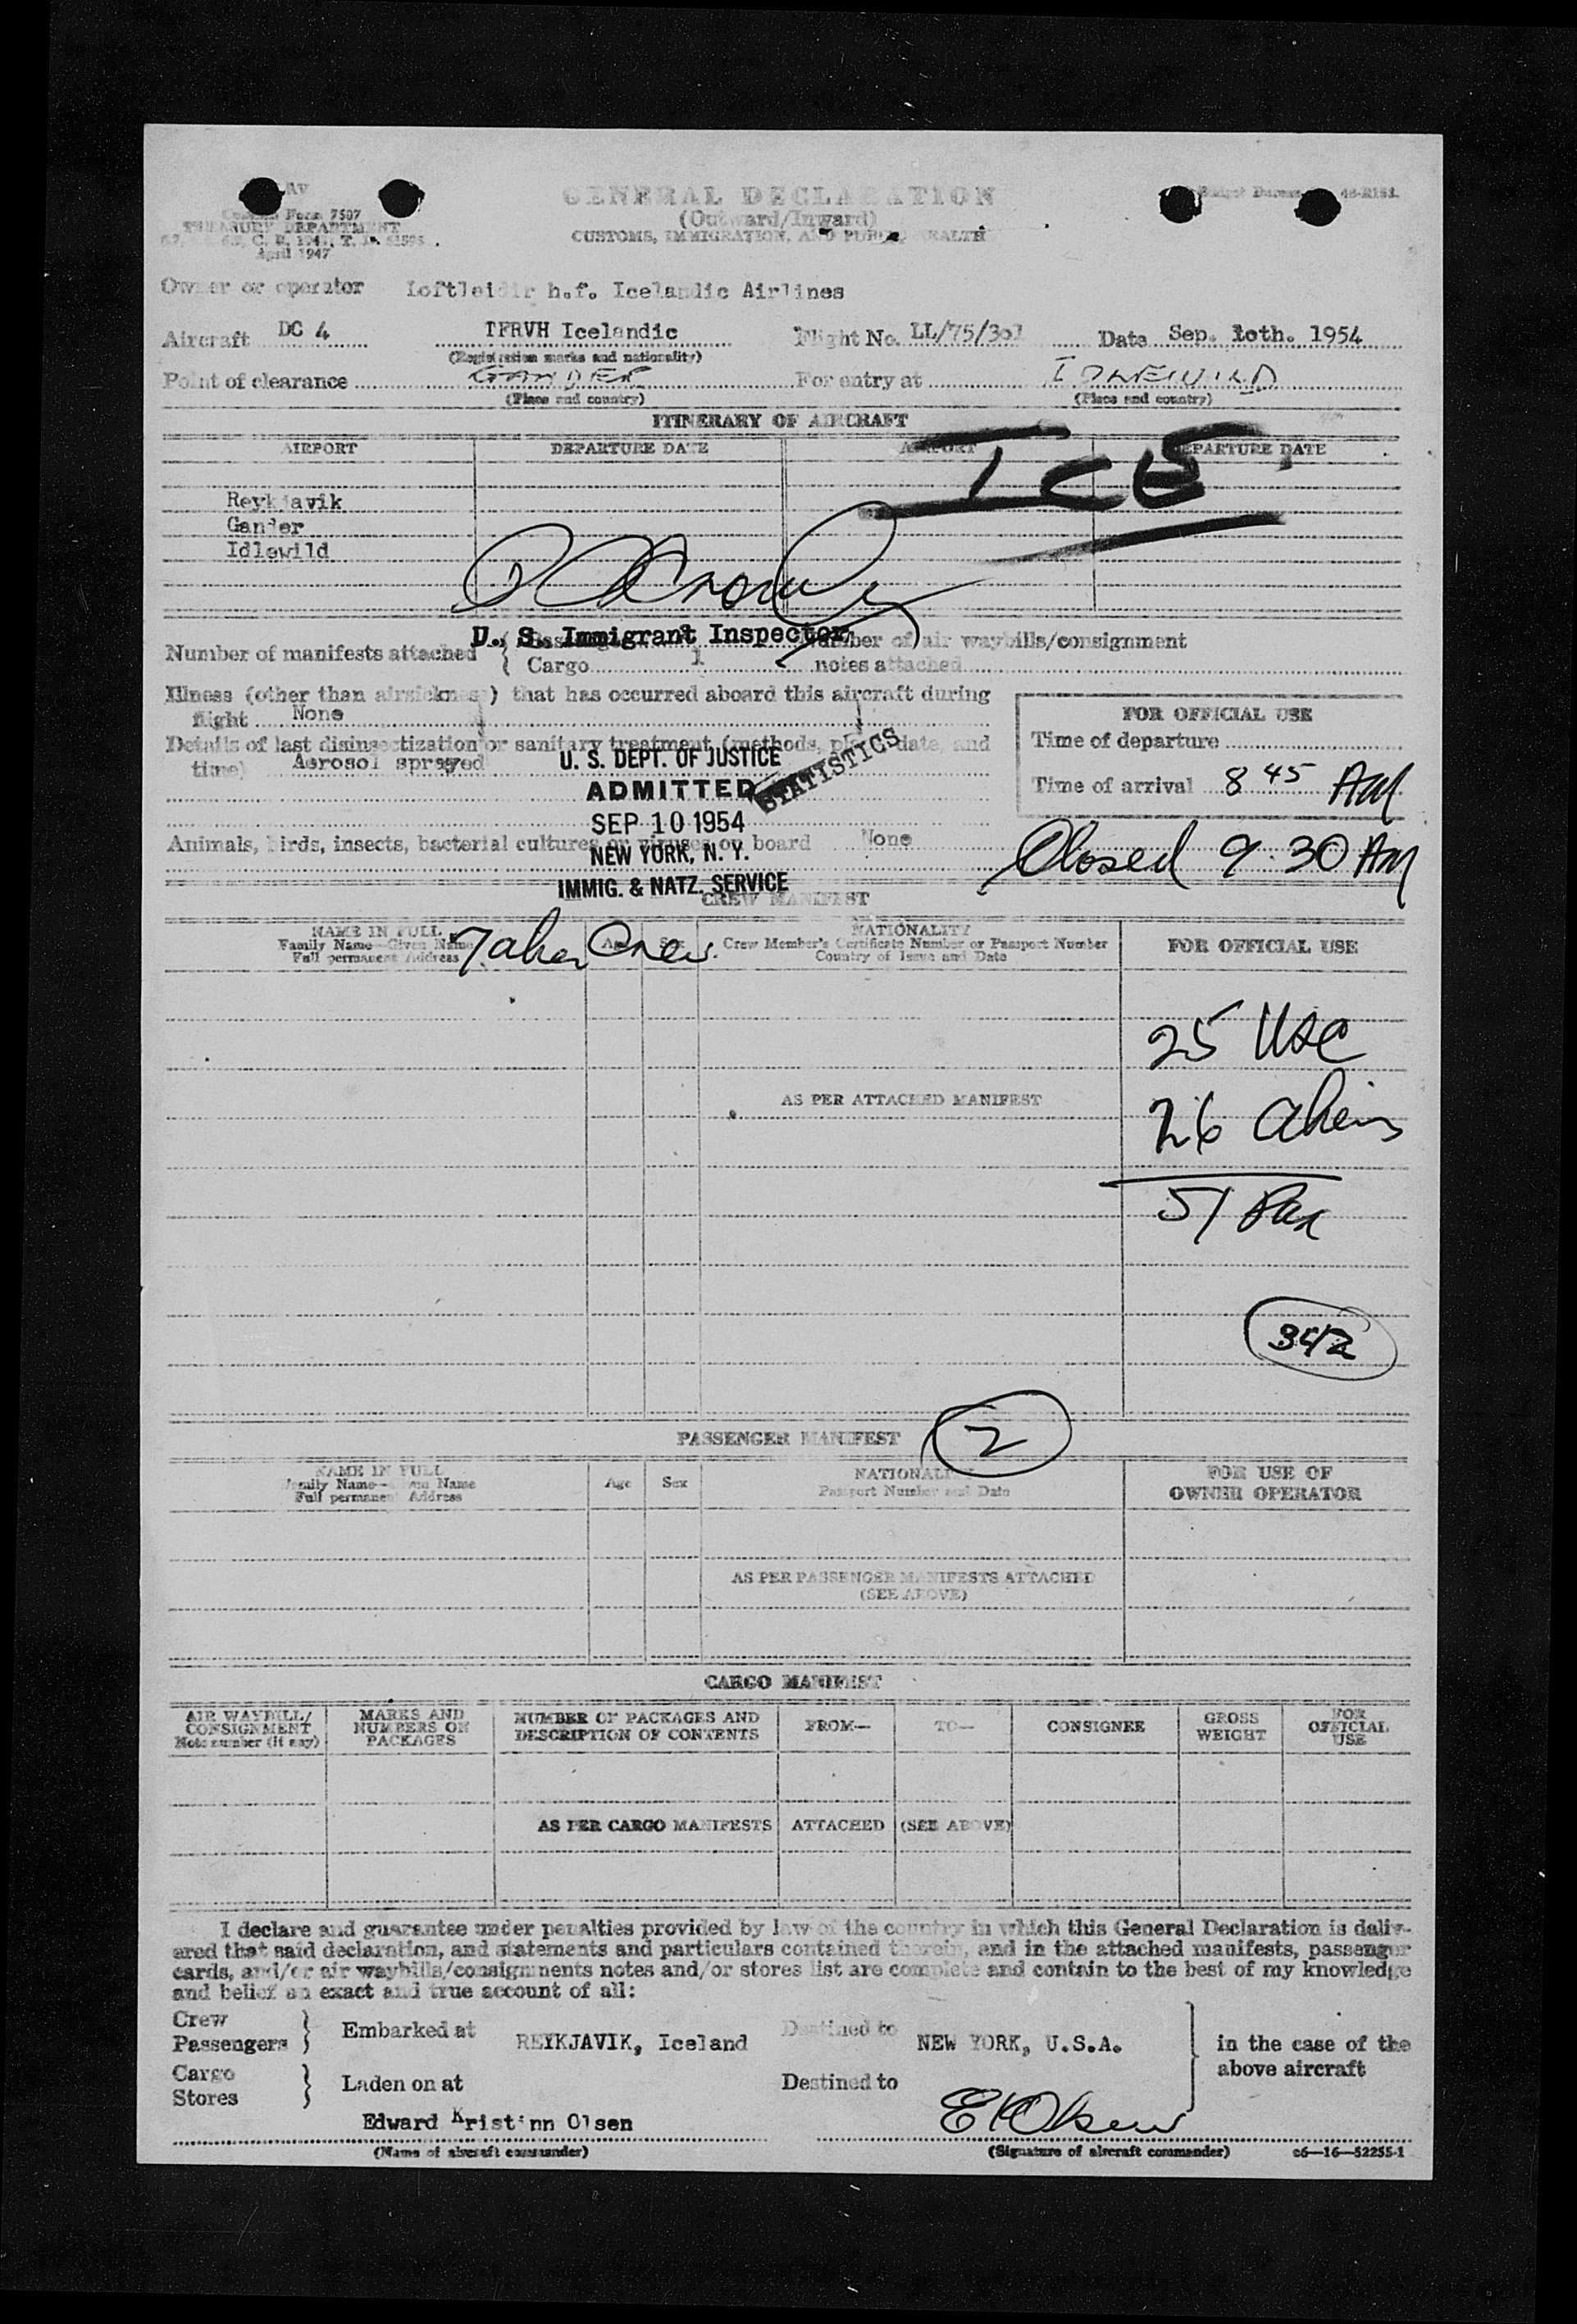 Form 7507
TREASURY DEPARTMENT
April 1947
GENERAL DECLARATION
(Outward/Inward)
CUSTOMS, IMMIGRATION, AND PUBLIC HEALTH
Owner or operator Loftleidir h.f. Icelandic Airlines
Aircraft DC 4 TFRVH Icelandic Flight No. LL/75/301 Date Sep. 10th. 1954
(Registration marks and nationality)
Point of clearance GANDER For entry at IDLEWILD
(Place and country) (Place and country)
ITINERARY OF AIRCRAFT
AIRPORT DEPARTURE DATE AIRPORT DEPARTURE DATE
ICE
Reykjavik
Gander
Idlewild
U. S. Immigrant Inspector
Number of manifests attached Number of air waybills/consignment
Cargo 1 notes attached
Illness (other than airsickness) that has occurred aboard this aircraft during
flight None
Details of last disinsectization or sanitary treatment (methods, place, date, and
time) Aerosol sprayed
FOR OFFICIAL USE
Time of departure
Time of arrival 8 45 AM
Closed 9:30 AM
U. S. DEPT. OF JUSTICE
ADMITTED
STATISTICS
SEP 10 1954
NEW YORK, N. Y.
IMMIG. & NATZ. SERVICE
Animals, birds, insects, bacterial cultures or viruses on board None
CREW MANIFEST
NAME IN FULL
Family Name—Given Name
Full permanent Address
Age Sex
NATIONALITY
Crew Member's Certificate Number or Passport Number
Country of Issue and Date
FOR OFFICIAL USE
Crew.
25 USC
AS PER ATTACHED MANIFEST
26 Aliens
51 Pax
342
2
PASSENGER MANIFEST
NAME IN FULL
Family Name—Given Name
Full permanent Address
Age Sex
NATIONALITY
Passport Number and Date
FOR USE OF
OWNER OPERATOR
AS PER PASSENGER MANIFESTS ATTACHED
(SEE ABOVE)
CARGO MANIFEST
AIR WAYBILL/
CONSIGNMENT
Note number (if any)
MARKS AND
NUMBERS ON
PACKAGES
NUMBER OF PACKAGES AND
DESCRIPTION OF CONTENTS
FROM— TO— CONSIGNEE
GROSS
WEIGHT
FOR
OFFICIAL
USE
AS PER CARGO MANIFESTS ATTACHED (SEE ABOVE)
I declare and guarantee under penalties provided by law of the country in which this General Declaration is deliv-
ered that said declaration, and statements and particulars contained therein, and in the attached manifests, passenger
cards, and/or air waybills/consignments notes and/or stores list are complete and contain to the best of my knowledge
and belief an exact and true account of all:
Crew
Passengers Embarked at REYKJAVIK, Iceland Destined to NEW YORK, U.S.A. in the case of the
above aircraft
Cargo
Stores Laden on at Destined to
Edward Kristinn Olsen EKOlsen
(Name of aircraft commander) (Signature of aircraft commander) c6—16—52255-1